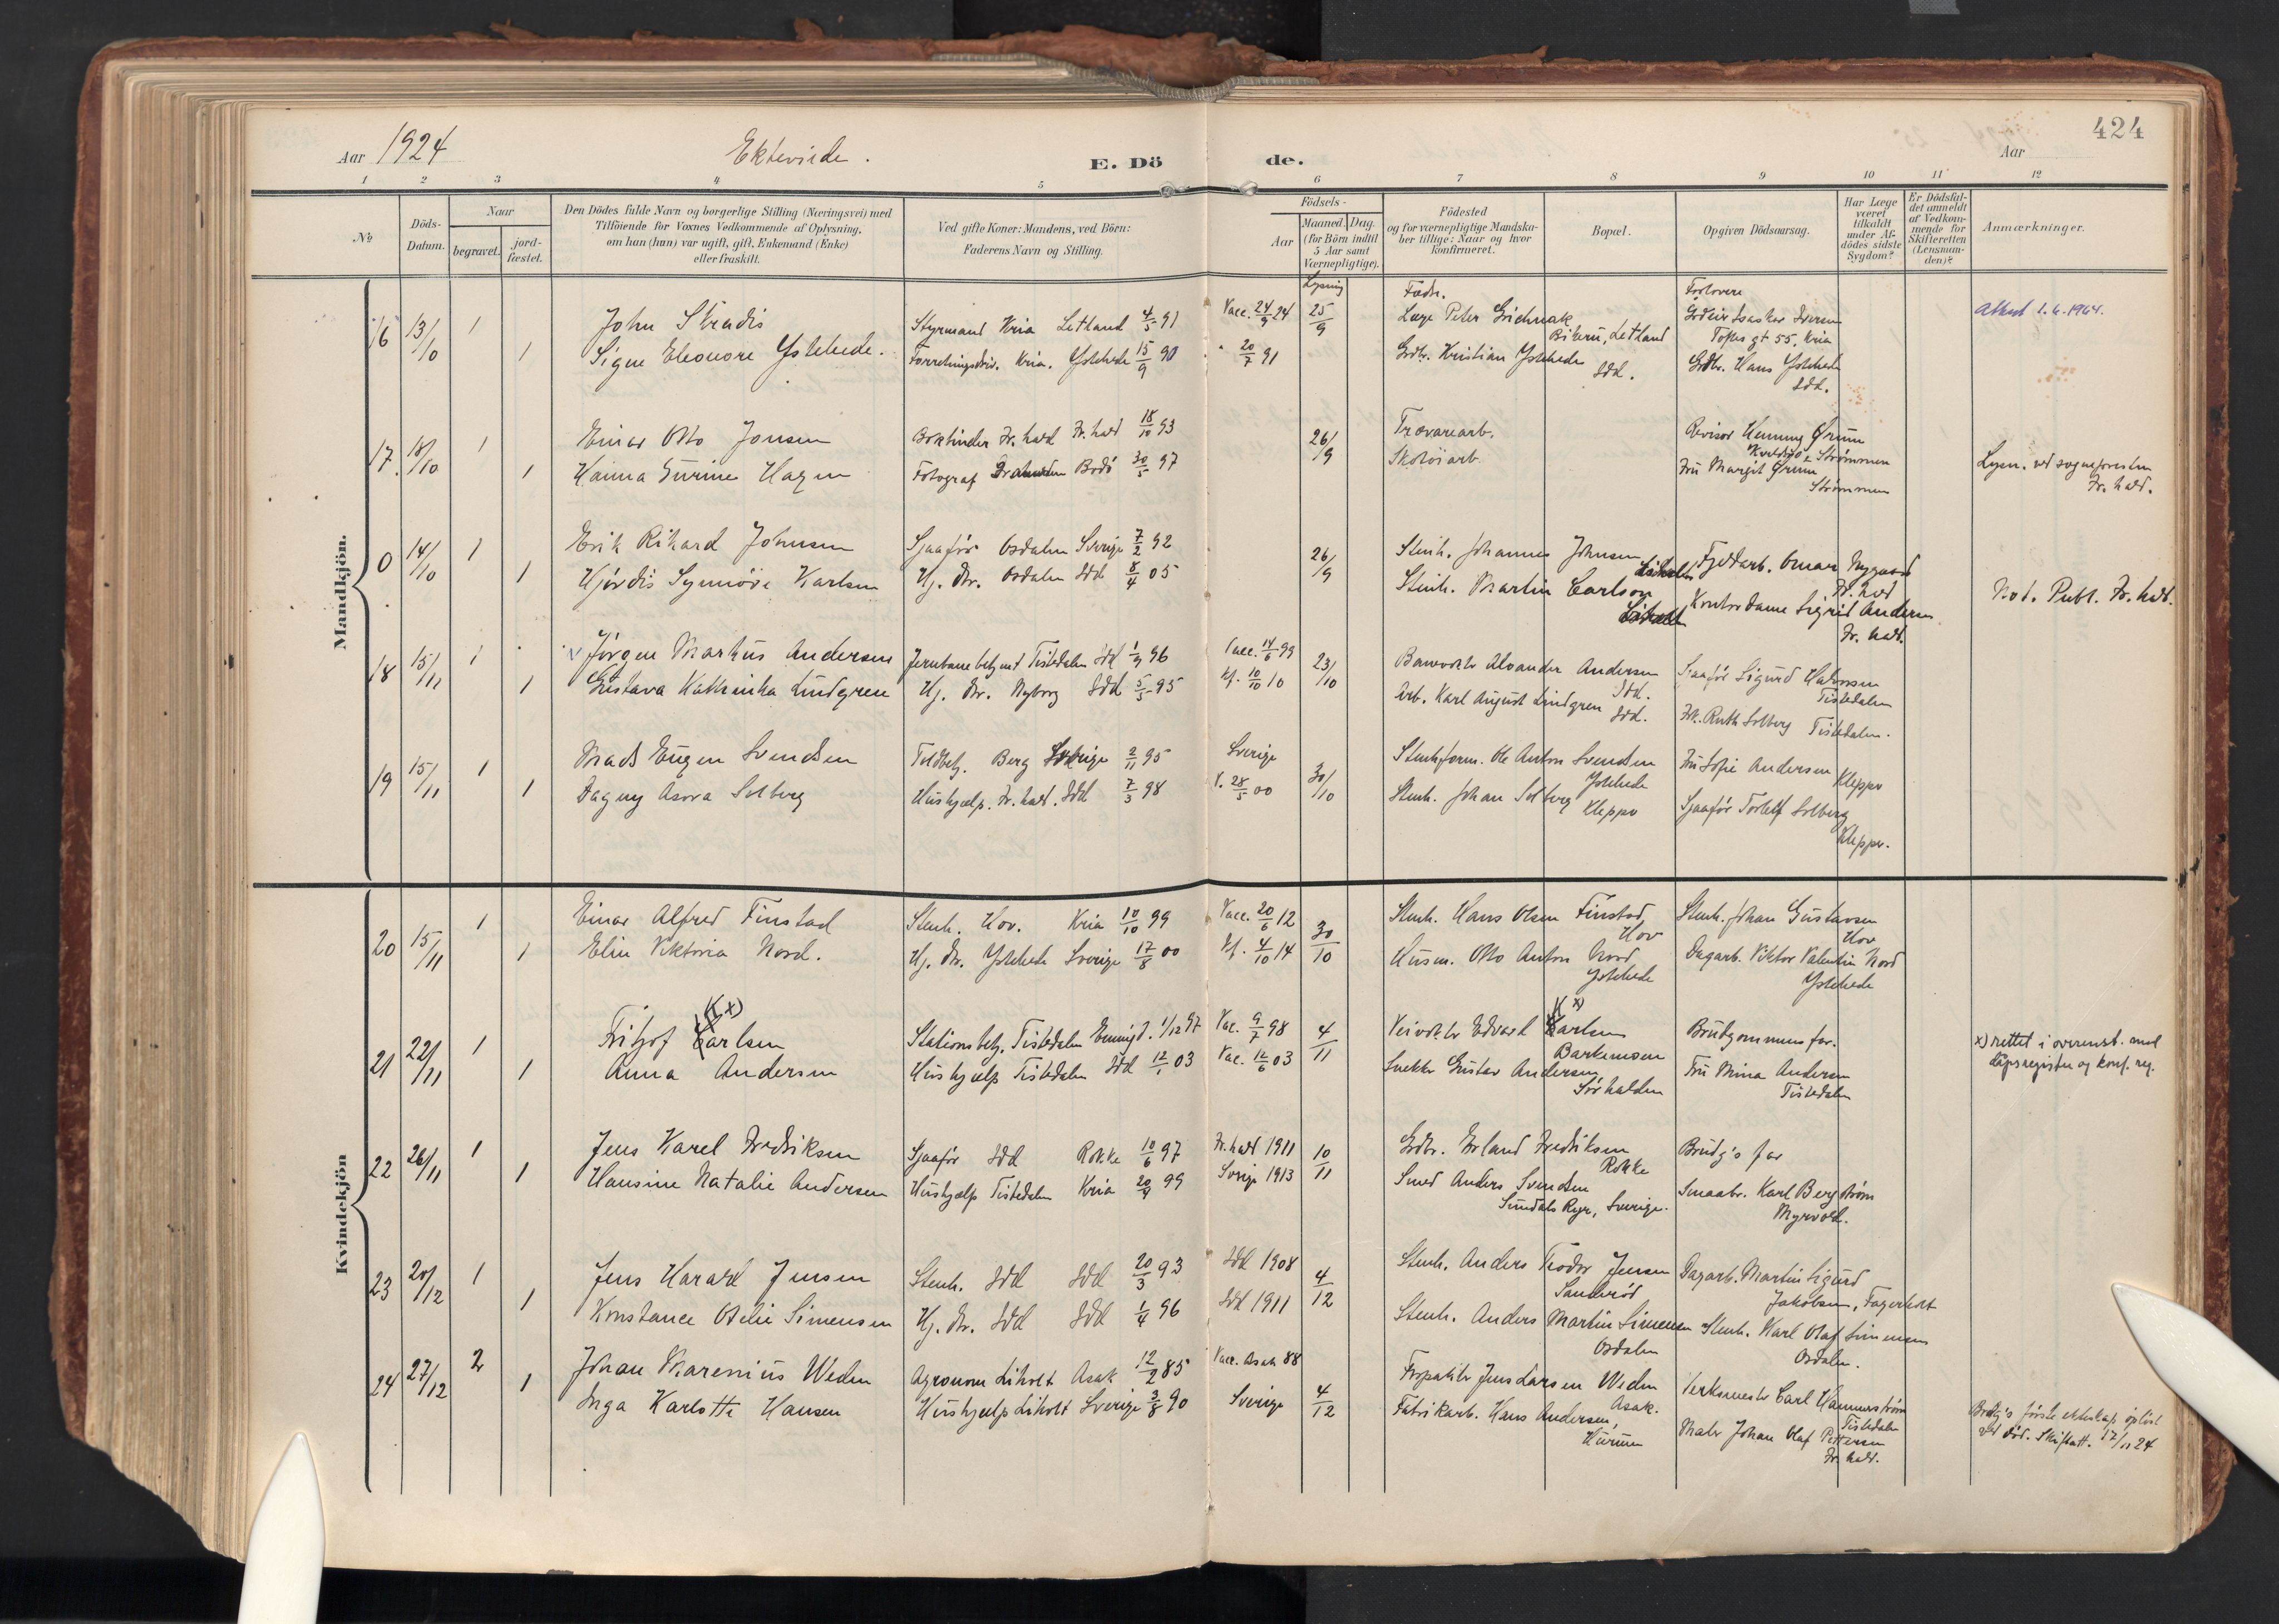 424
Aar 1924
Ektevirde.
E. Dö
de.
Aar
1 2 3 4 5 6 7 8 9 10 11 12
№
Döds-
Datum.
Naar
begravet.
jord-
fæstet.
Den Dödes fulde Navn og borgerlige Stilling (Næringsvei) med
Tilföiende for Voxnes Vedkommende af Oplysning,
om han (hun) var ugift, gift, Enkemand (Enke)
eller fraskilt.
Ved gifte Koner: Mandens, ved Börn:
Faderens Navn og Stilling.
Födsels-
Aar
Maaned. Dag.
(for Börn indtil
5 Aar samt
Værnepligtige).
Födested
og for værnepligtige Mandska-
ber tillige: Naar og hvor
konfirmeret.
Bopæl.
Opgiven Dödsaarsag.
Har Læge
været
tilkaldt
under Af-
dödes sidste
Sygdom?
Er Dödsfal-
det anmeldt
af Vedkom-
mende for
Skifteretten
(Lensman-
den)?
Anmærkninger.
Mandkjön.
Lysning
Fædr.
Forlovere
16 13/10 1 John Skradis Styrmand Kria Letland 4/5 91 Vacc. 24/9 24 25/9 Læge Peter
Bikern, Letland
Toftes gt 55, Kria
Attest 1.6.1964.
1 Signe Eleonore Ystehede. Forretningsdriv. Kria. Ystehede 15/9 90 " 20/7 91 Grdbr. Kristian Ystehede
Idd.
Grdbr. Hans Ystehede
Idd.
17. 18/10 1 Einar Otto Jonsen Bokbinder Fr.hald Fr.hald 18/10 93 26/9 Trævarearb. Revisor Henning Ørum
Strømmen
1 Hanna Surine Hagen Fotograf Bodö 30/5 97 Skotöiarb. Fru Margit Ørum
Strømmen
Lysn. ved sognepresten
Fr.hald.
0 14/10 1 Erik Rikard Johnsen Sjaafør Osdalen Sverige 7/2 92 26/9 Stenh. Johannes Johnsen
Fjeldarb. Omar Nygaard
Fr.hald
1 Hjørdis Synnöve Karlsen Hj. dtr. Osdalen Idd 8/4 05 Stenh. Martin Carlson
Kontordame Sigrid Andersen
Fr.hald.
Not. Publ. Fr.hald.
18 15/11 1 Jörgen Markus Andersen Jernbanebetjent Tistedalen Idd 1/9 96 Vacc. 14/6 99 23/10 Banevokter Alvander Andersen
Idd.
Sjaafør Sigurd Halvorsen
Tistedalen
1 Gustava Kathinka Lindgren Hj. dtr. Nyborg Idd 5/5 95 Kf. 10/10 10 Arb. Karl August Lindgren
Idd.
Frk. Ruth Solberg Tistedalen.
19 15/11 1 Mads Eugen Svendsen Toldbetj. Berg Sverige 2/11 95 Sverige 30/10 Stenh.form. Ole Anton Svendsen
Ystehede
Fru Sofie Andersen
Kleppo
1 Dagny Asora Solberg Hushjælp. Fr.hald. Idd 7/3 98 V. 28/5 00 Stenh. Johan Solberg
Kleppo
Sjaafør Torleif Solberg
Klepper.
Kvindekjön
20 15/11 1 Einar Alfred Finstad Stenh. Hov. Kria 10/10 99 Vacc. 20/6 12 30/10 Stenh. Hans Olsen Finstad
Hov
Stenh. Johan Gustavsen
Hov
1 Elin Viktoria Nord. Hj. dtr. Ystehede Sverige 17/8 00 Kf. 4/10 14 Husm. Otto Anton Nord
Ystehede
Dagarb. Viktor Valentin Nord
Ystehede
21 22/11 1 Fritjof Karlsen x) Stationsbetj. Tistedalen Enningd. 1/12 97 Vac. 9/7 98 4/11 Veivokter Edvard Karlsen x)
Brudgommens far.
x) rettet i overenst. med
dåpsregister og konf. reg.
1 Anna Andersen Hushjælp Tistedalen Idd 12/1 03 Vac. 12/6 03 Snekker Gustav Andersen
Sørhalden
Fru Mina Andersen
Tistedalen
22 26/11 1 Jens Karel Fredriksen Sjaafør Idd Rokke 10/6 97 Fr.hald 1911 10/11 Grdbr. Erland Fredriksen
Rokke
Brudg's far
1 Hansine Natalie Andersen Hushjælp Tistedalen Kria 20/9 99 Sverige 1913 Smed Anders Svendsen
Sundals Ryr, Sverige.
Smaabr. Karl Bergstrøm
Myrvold.
23 20/12 1 Jens Harald Jensen Stenh. Idd Idd 20/3 93 Idd 1908 4/12 Stenh. Anders Teodor Jensen
Dagarb. Martin Sigurd
Jakobsen, Fagerholt
1 Konstance Otelie Simensen Hj. dtr. Idd Idd 1/4 96 Idd 1911 Stenh. Anders Martin Simensen
Osdalen
Stenh. Karl Olaf Simensen
Osdalen.
24 27/12 2 Johan Marenius Weden Agronom Liholt Asak 12/2 85 Vacc. Asak 88 4/12 Forpakter Jens Larsen Weden
Asak.
Verkmester Carl Hammerstrøm
Tistedalen
1 Inga Karlotte Hansen Hushjælp Liholt Sverige 3/8 90 Sverige Fabrikarb. Hans Andersen,
Hurum
Maler Johan Olaf Pettersen
Fr.hald.
Brudg's første ekteskap opløst
ved död. Skifteatt. 17/11 24